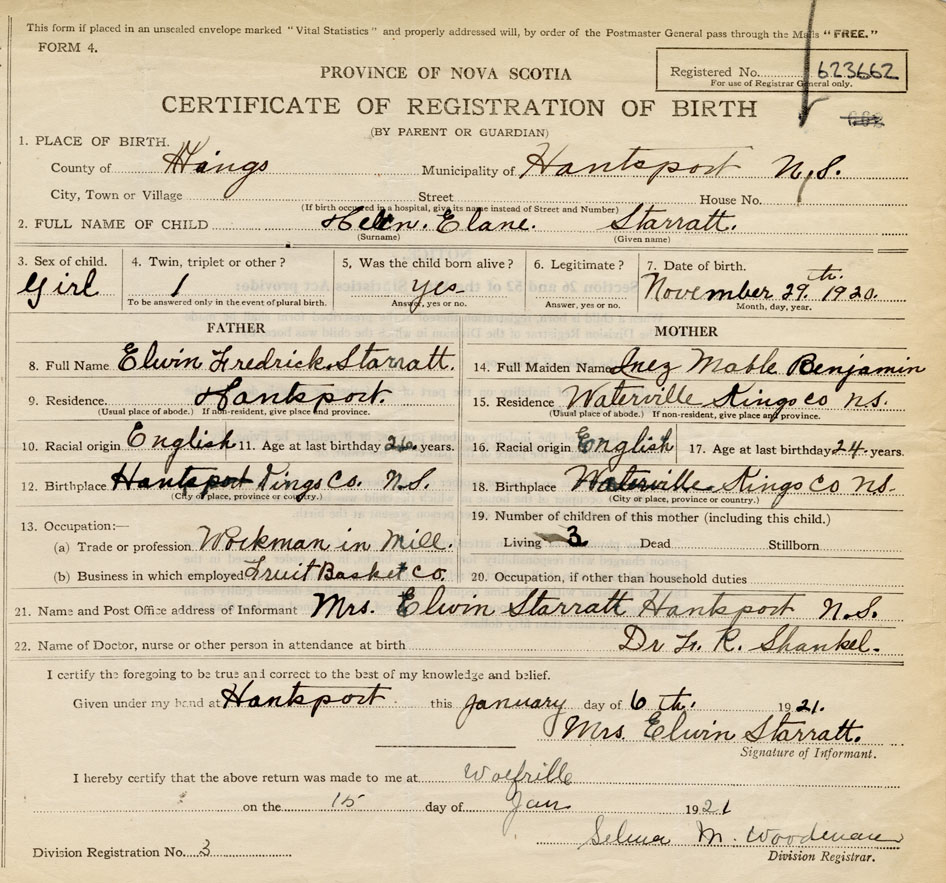 This form if placed in an unsealed envelope marked "Vital Statistics" and properly addressed will, by order of the Postmaster General pass through the Mails "FREE."
FORM 4.
Registered No. 623662
For use of Registrar General only.
PROVINCE OF NOVA SCOTIA
CERTIFICATE OF REGISTRATION OF BIRTH
(BY PARENT OR GUARDIAN)
1. PLACE OF BIRTH.
County of Kings Municipality of Hantsport N.S.
City, Town or Village Street House No.
(If birth occurred in a hospital, give its name instead of Street and Number)
2. FULL NAME OF CHILD Helen. Elane. Starratt.
(Surname) (Given name)
3. Sex of child. 4. Twin, triplet or other? 5. Was the child born alive? 6. Legitimate? 7. Date of birth.
Girl 1 yes November 29.th. 1920.
To be answered only in the event of plural birth. Answer, yes or no. Answer, yes or no. Month, day, year.
FATHER MOTHER
8. Full Name Elwin Fredrick Starratt. 14. Full Maiden Name Inez Mable Benjamin
9. Residence. Hantsport. 15. Residence Waterville Kings co n.s.
(Usual place of abode.) If non-resident, give place and province. (Usual place of abode.) If non-resident, give place and province.
10. Racial origin English 11. Age at last birthday 26 years. 16. Racial origin English 17. Age at last birthday 24 years.
12. Birthplace Hantsport Kings Co. N.S. 18. Birthplace Waterville Kings Co n.s.
(City or place, province or country.) (City or place, province or country.)
13. Occupation:— 19. Number of children of this mother (including this child.)
(a) Trade or profession Workman in Mill. Living 3 Dead Stillborn
(b) Business in which employed Fruit Basket co. 20. Occupation, if other than household duties
21. Name and Post Office address of Informant Mrs. Elwin Starratt Hantsport N.S.
22. Name of Doctor, nurse or other person in attendance at birth Dr R. Shankel.
I certify the foregoing to be true and correct to the best of my knowledge and belief.
Given under my hand at Hantsport this January day of 6 th. 1921.
Mrs. Elwin Starratt.
Signature of Informant.
I hereby certify that the above return was made to me at Wolfville
on the 15 day of Jan 1921
Selma M. Woodman
Division Registration No. 3 Division Registrar.